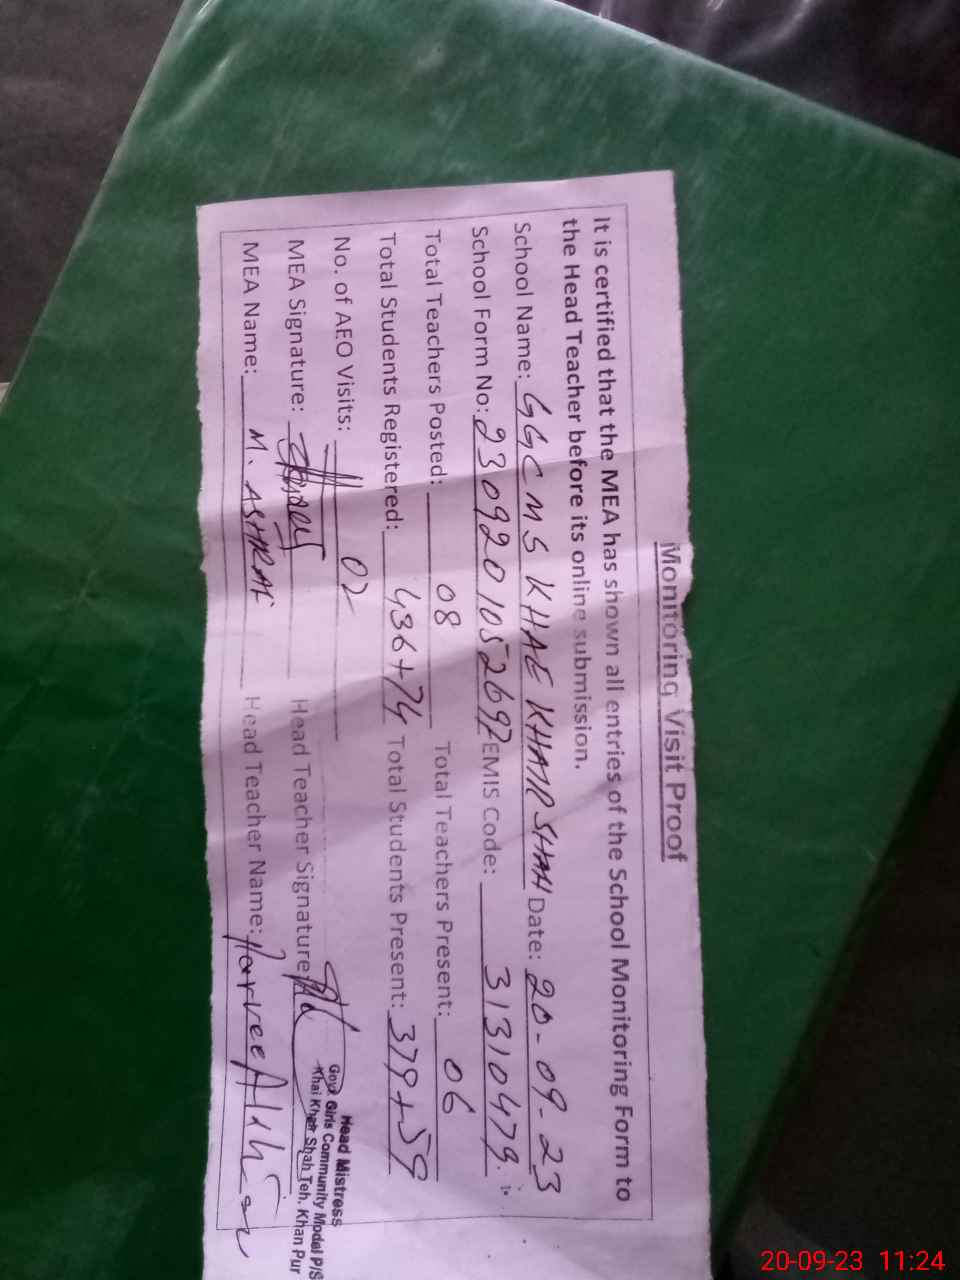 Monitoring Visit Proof
It is certified that the MEA has shown all entries of the School Monitoring Form to
the Head Teacher before its online submission.
School Name: GGCMS KHAE KHAIR SHAH Date: 20-09-23
School Form No: 2309201052692 EMIS Code: 31310479
Total Teachers Posted: 08 Total Teachers Present: 06
Total Students Registered: 436+74 Total Students Present: 379+59
No. of AEO Visits: 02
MEA Signature: Head Teacher Signature:
MEA Name: M. ASHRAF Head Teacher Name:
Head Mistress
Govt. Girls Community Model P/S
Khai Khair Shah Teh. Khan Pur
20-09-23 11:24